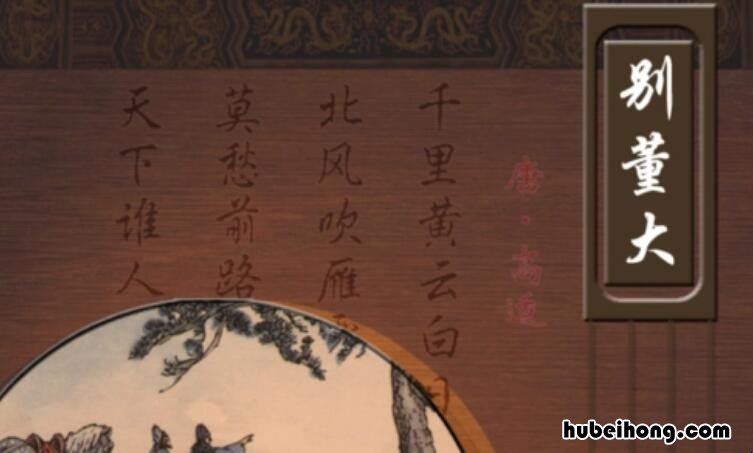 别董大
唐·高适
千里黄云白日
北风吹雁
莫愁前路
天下谁人
hubeihong.com